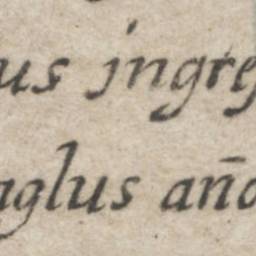 us jngres
aglus año